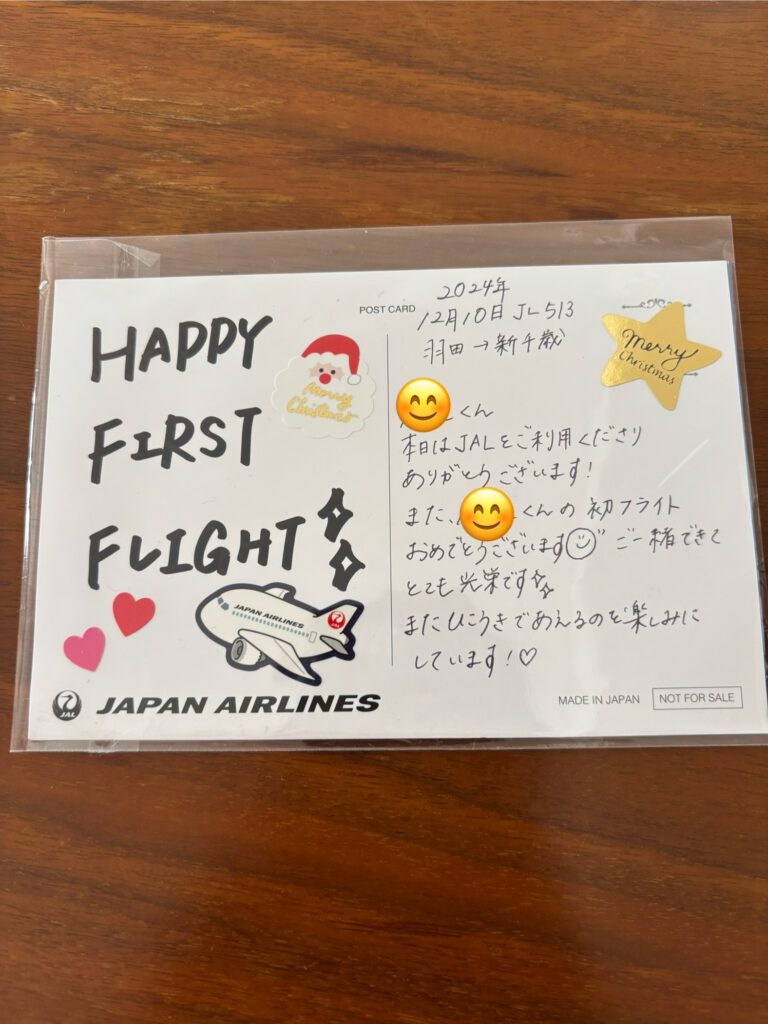 HAPPY
FIRST
FLIGHT
Merry
Christmas
JAPAN AIRLINES
JAL
JAPAN AIRLINES
POST CARD
2024年
12月10日 JL513
羽田→新千歳
Merry
Christmas
くん
本日はJALをご利用くださり
ありがとうございます!
また、くんの初フライト
おめでとうございます ご一緒できて
とても光栄です
またひこうきであえるのを楽しみに
しています!♡
MADE IN JAPAN
NOT FOR SALE